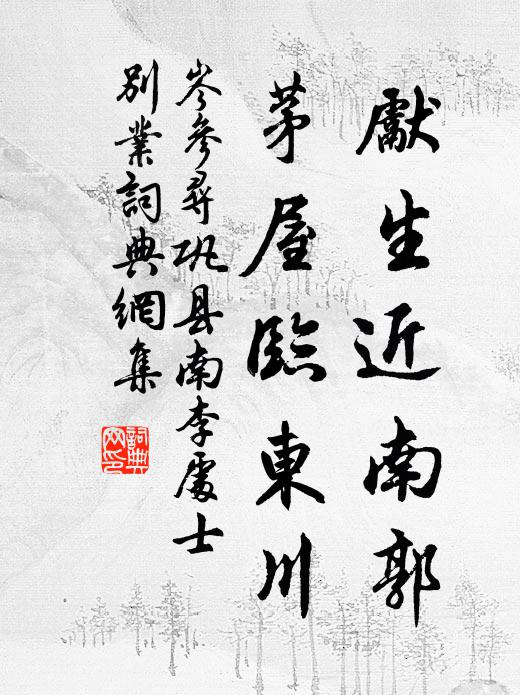 獻生近南郭
茅屋臨東川
岑參尋巩县南李處士
別業詞典網集
詞典网印